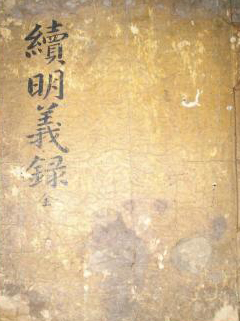 續明義録全